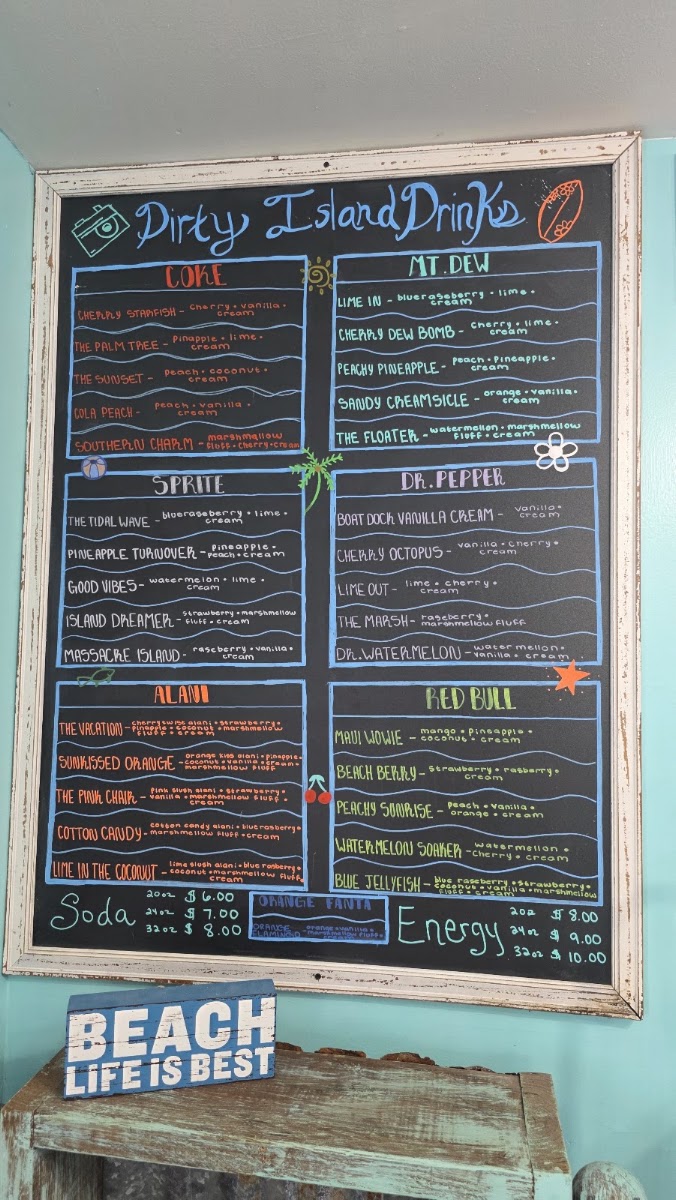 Dirty Island Drinks
COKE
CHERRY STARFISH - cherry • vanilla •
cream
THE PALM TREE - pinapple • lime •
cream
THE SUNSET - peach • coconut •
cream
COLA PEACH - peach • vanilla •
cream
SOUTHERN CHARM - marshmallow
fluff • cherry • cream
MT. DEW
LIME IN - blueraseberry • lime •
cream
CHERRY DEW BOMB - cherry • lime •
cream
PEACHY PINEAPPLE - peach • pineapple •
cream
SANDY CREAMSICLE - orange • vanilla •
cream
THE FLOATER - watermellon • marshmellow
fluff • cream
SPRITE
THE TIDAL WAVE - blueraseberry • lime •
cream
PINEAPPLE TURNOVER - pineapple •
peach • cream
GOOD VIBES - watermelon • lime •
cream
ISLAND DREAMER - strawberry • marshmellow
fluff • cream
MASSACRE ISLAND - raseberry • vanilla •
cream
DR. PEPPER
BOAT DOCK VANILLA CREAM - vanilla •
cream
CHERRY OCTOPUS - vanilla • cherry •
cream
LIME OUT - lime • cherry •
cream
THE MARSH - raseberry •
marshmellow fluff
DR. WATERMELON - water mellon •
vanilla • cream
ALANI
THE VACATION - cherry twist alani • strawberry •
pinapple • coconut • marshmellow
fluff • cream
SUNKISSED ORANGE - orange kiss alani • pinapple •
coconut • vanilla • cream •
marshmellow fluff
THE PINK CHAIR - pink slush alani • strawberry •
vanilla • marshmellow fluff •
cream
COTTON CANDY - cotton candy alani • blue rasberry •
marshmellow fluff • cream
LIME IN THE COCONUT - lime slush alani • blue rasberry •
coconut • marshmellow fluff •
cream
RED BULL
MAUI WOWIE - mango • pineapple •
coconut • cream
BEACH BERRY - strawberry • rasberry •
cream
PEACHY SUNRISE - peach • vanilla •
orange • cream
WATERMELON SOAKER - watermellon •
cherry • cream
BLUE JELLYFISH - blue raseberry • strawberry •
coconut • vanilla • marshmellow
fluff • cream
Soda
20oz $ 6.00
24oz $ 7.00
32oz $ 8.00
ORANGE FANTA
ORANGE
FLAMINGO - orange • vanilla •
marshmellow fluff •
cream
Energy
20z $ 8.00
24oz $ 9.00
32oz $ 10.00
BEACH
LIFE IS BEST